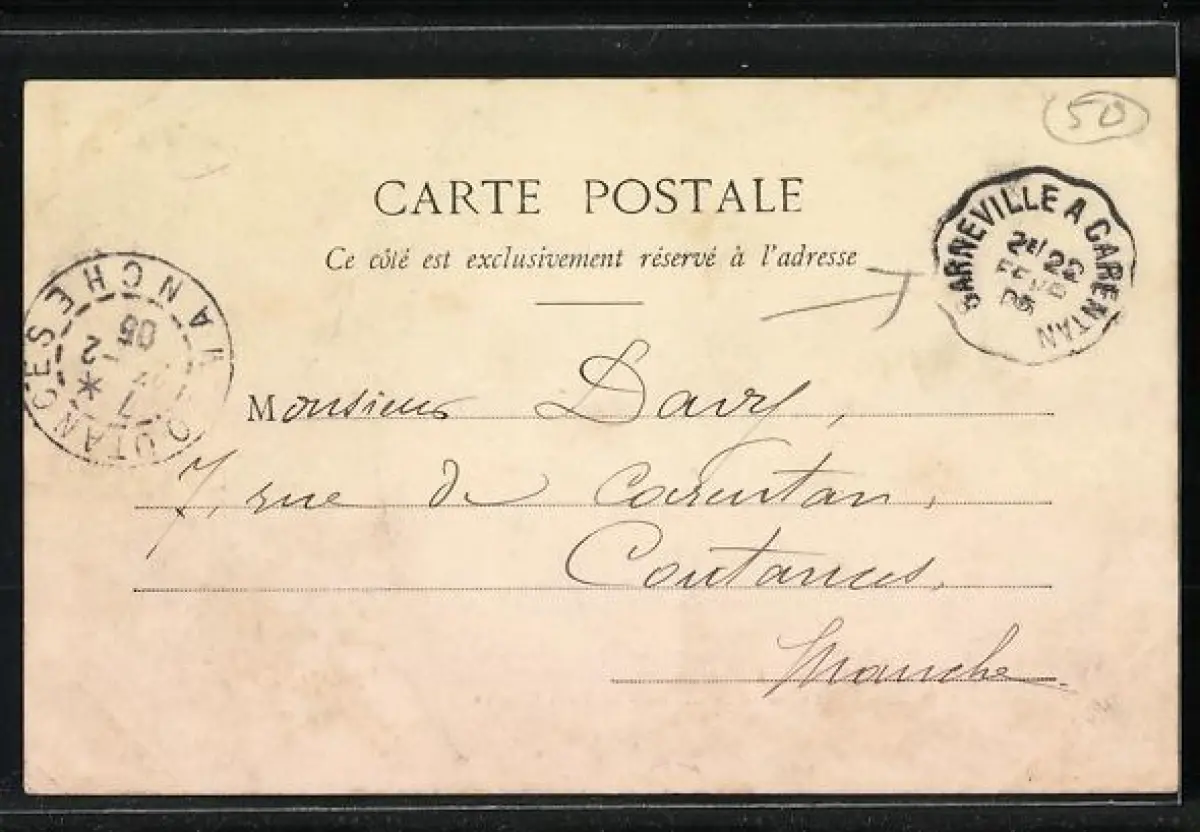 50
CARTE POSTALE
Ce côté est exclusivement réservé à l'adresse
BARNEVILLE A CARENTAN
2E/ 22
FEVR
05
COUTANCES
MANCHE
05
Monsieur Davy,
7, rue de Carentan,
Coutances,
Manche